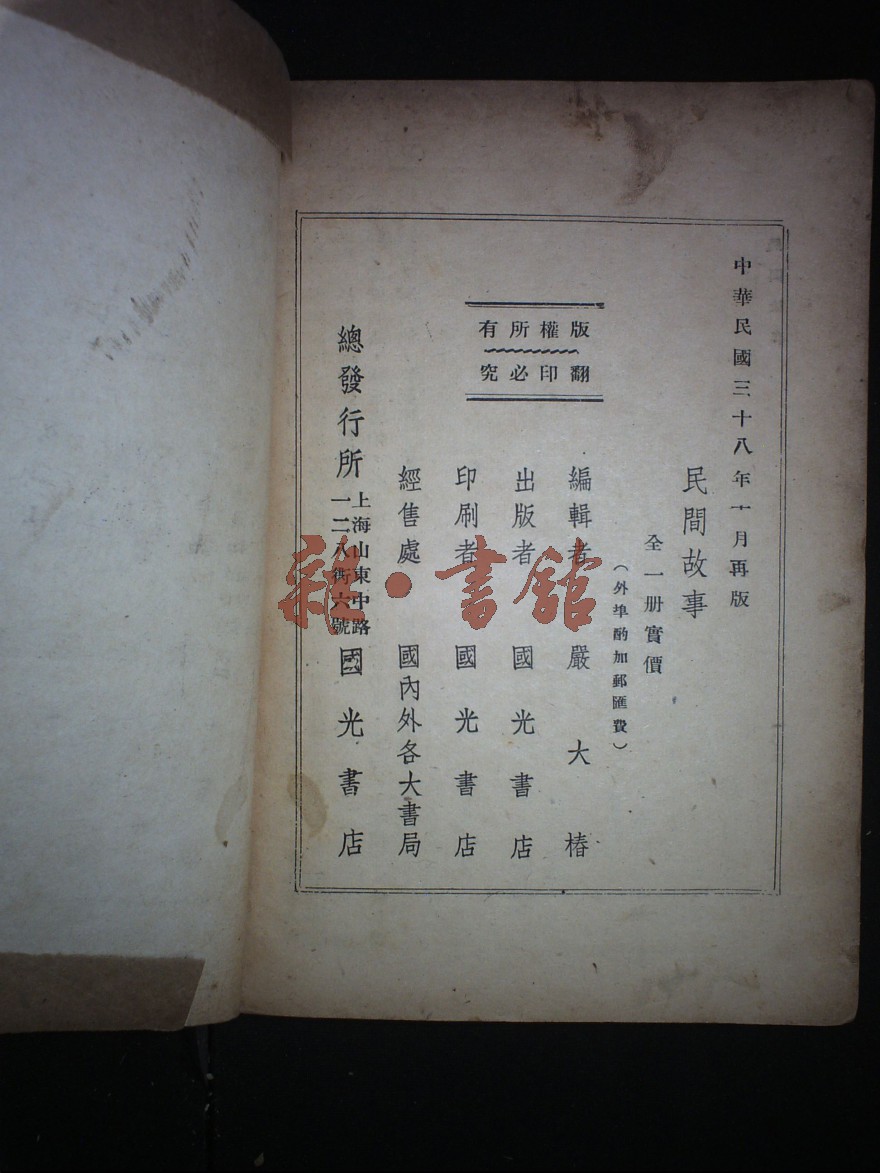 中華民國三十八年十月再版
民間故事
全一册實價
（外埠酌加郵匯費）
版權所有
翻印必究
編輯者 嚴大椿
出版者 國光書店
印刷者 國光書店
經售處 國內外各大書局
總發行所 上海山東中路一二八衖六號 國光書店
雜·書館